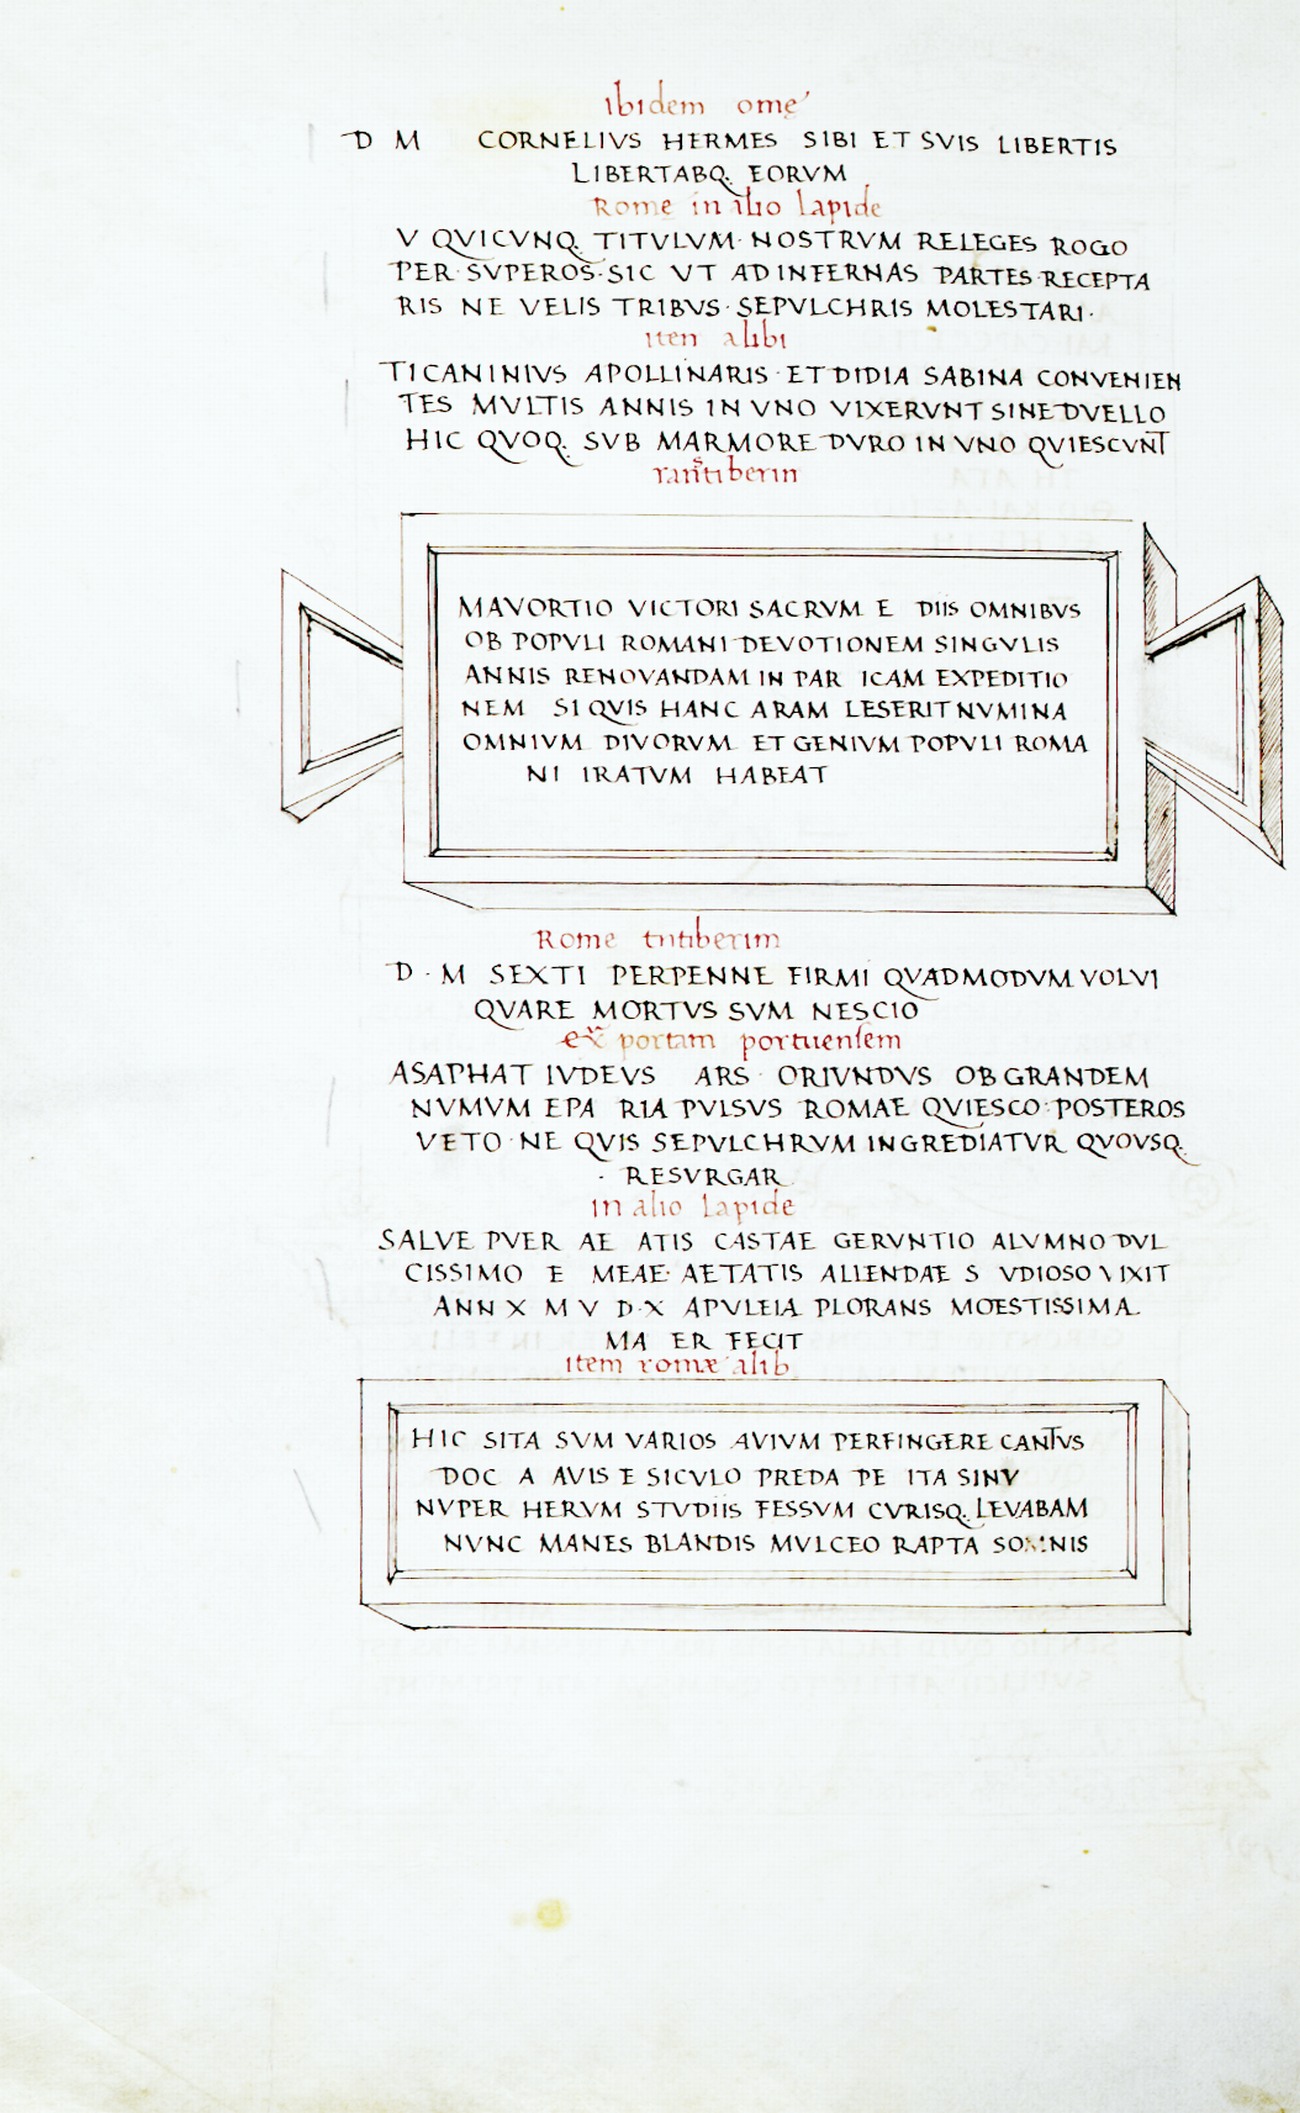 ibidem ome
D M CORNELIVS HERMES SIBI ET SVIS LIBERTIS
LIBERTABQ. EORVM
Rome in alio lapide
V QVICVNQ. TITVLVM· NOSTRVM RELEGES ROGO
PER·SVPEROS·SIC VT AD INFERNAS PARTES·RECEPTA
RIS NE VELIS TRIBVS·SEPVLCHRIS MOLESTARI·
iten alibi
TICANINIVS APOLLINARIS·ET DIDIA SABINA CONVENIEN
TES MVLTIS ANNIS IN VNO VIXERVNT SINE DVELLO
HIC QVOQ. SVB MARMORE DVRO IN VNO QVIESCVNT
MAVORTIO VICTORI SACRVM E DIIS OMNIBVS
OB POPVLI ROMANI DEVOTIONEM SINGVLIS
ANNIS RENOVANDAM IN PAR ICAM EXPEDITIO
NEM SI QVIS HANC ARAM LESERIT NVMINA
OMNIVM DIVORVM ET GENIVM POPVLI ROMA
NI IRATVM HABEAT
Rome
D·M SEXTI PERPENNE FIRMI QVADMODVM VOLVI
QVARE MORTVS SVM NESCIO
portam portuensem
ASAPHAT IVDEVS ARS· ORIVNDVS OB GRANDEM
NVMVM EPA RIA PVLSVS ROMAE QVIESCO:POSTEROS
VETO·NE QVIS SEPVLCHRVM INGREDIATVR QVOVSQ.
· RESVRGAR
in alio lapide
SALVE PVER AE ATIS CASTAE GERVNTIO ALVMNO DVL
CISSIMO E MEAE· AETATIS ALLENDAE S VDIOSO VIXIT
ANN X M V D·X APVLEIA PLORANS MOESTISSIMA
MA ER FECIT
item romæ alib
HIC SITA SVM VARIOS AVIVM PERFINGERE CANTVS
DOC A AVIS E SICVLO PREDA PE ITA SINV
NVPER HERVM STVDIIS FESSVM CVRISQ. LEVABAM
NVNC MANES BLANDIS MVLCEO RAPTA SOMNIS